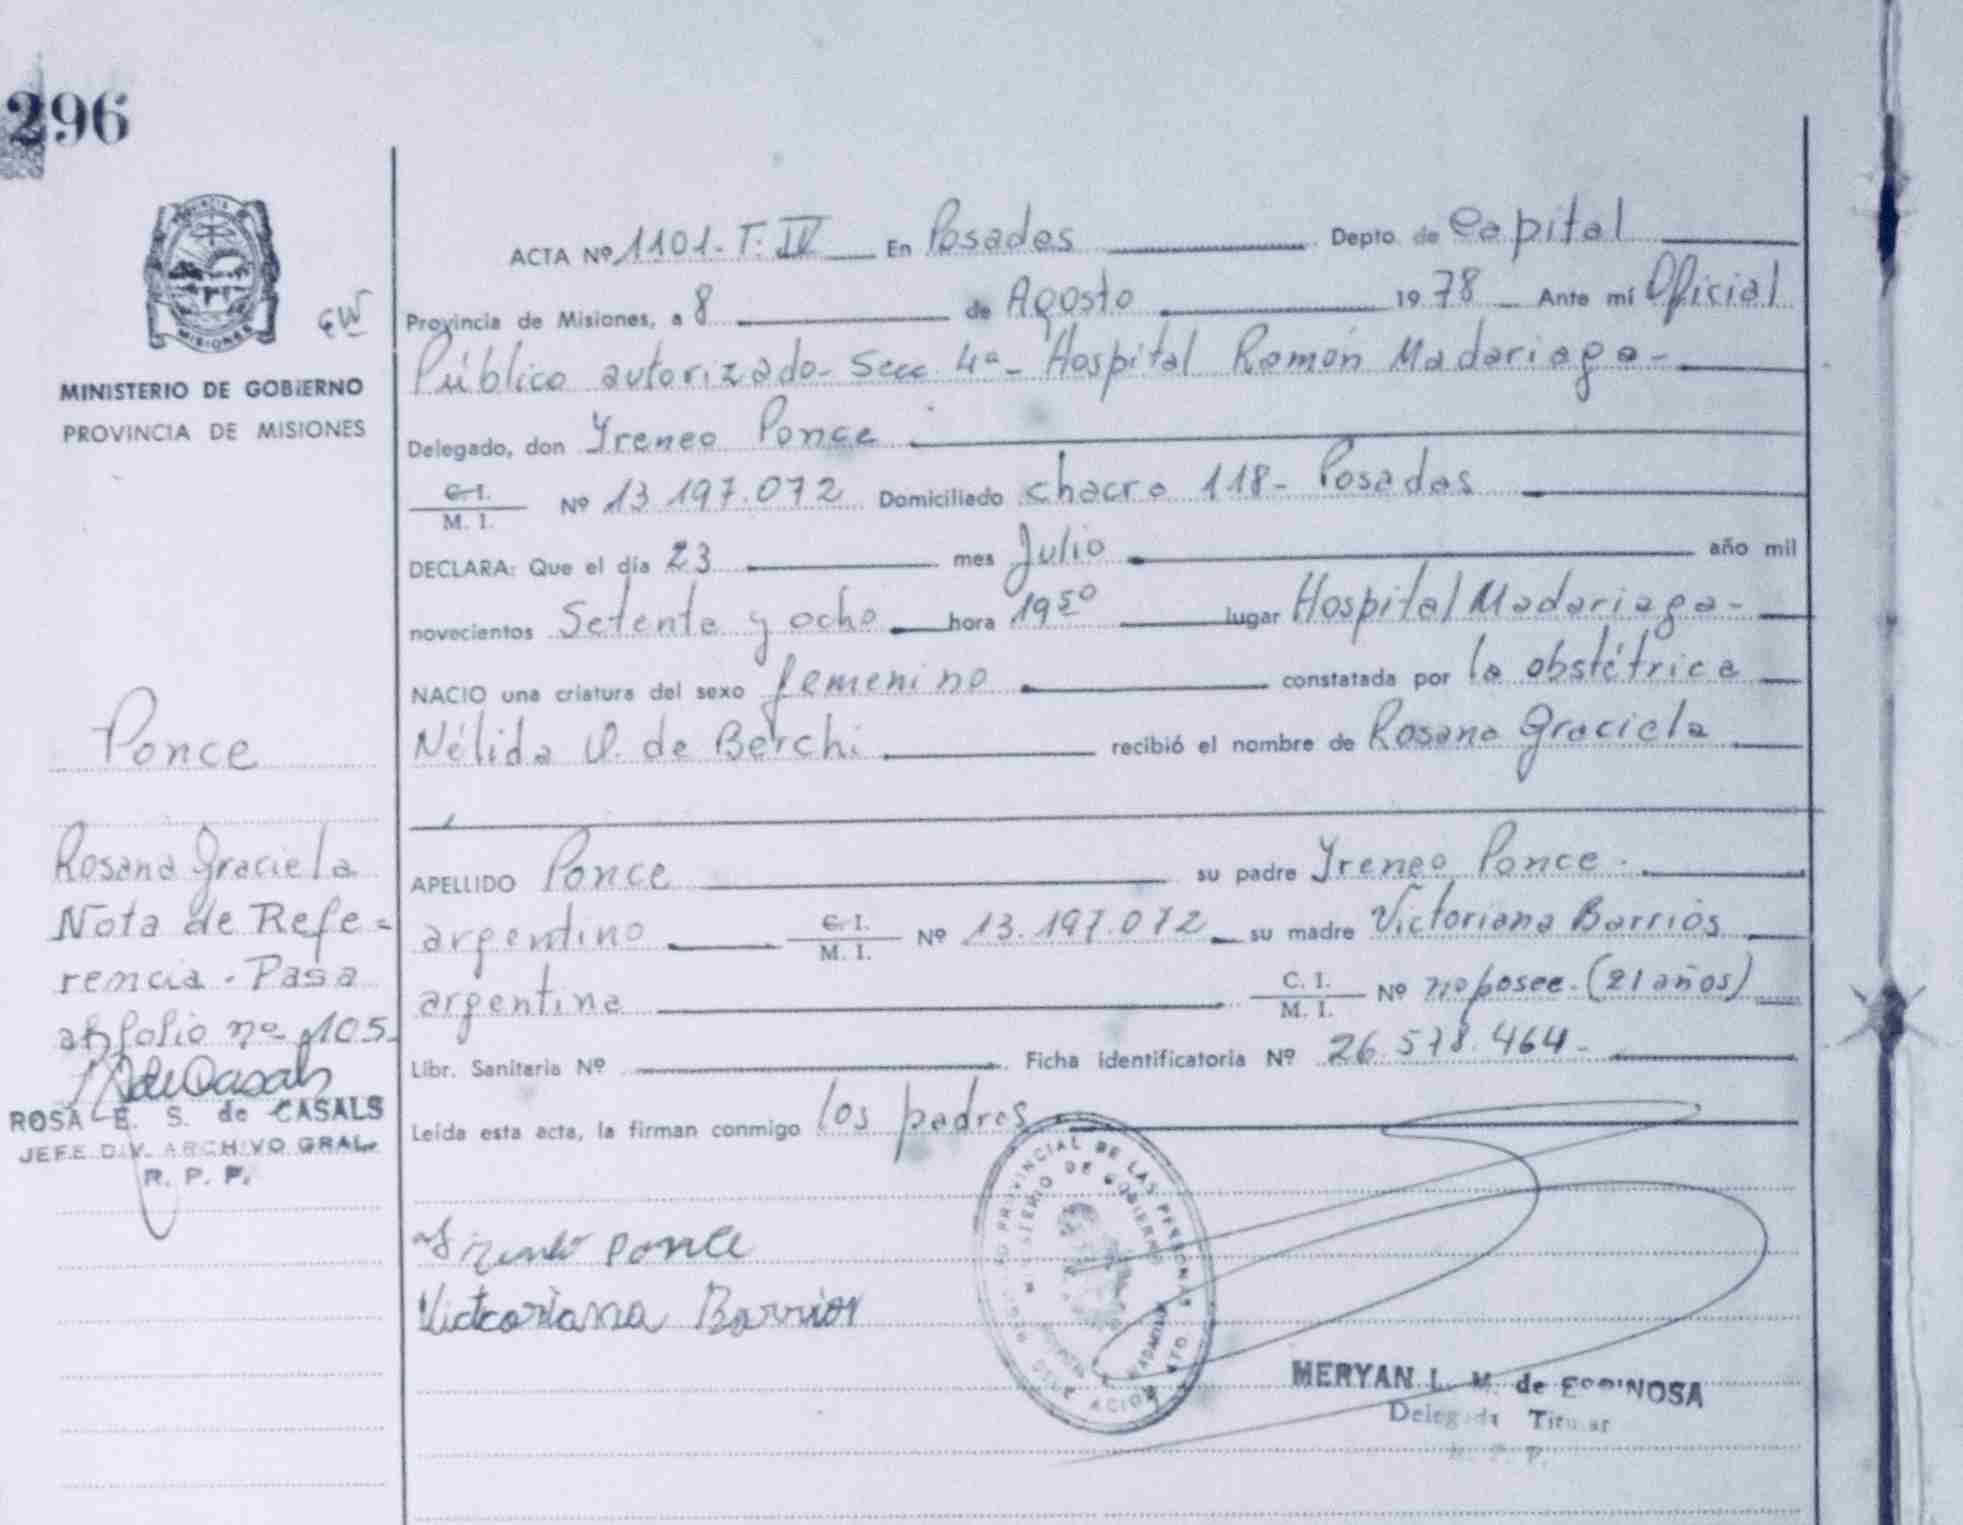 296
PROVINCIA DE
MISIONES
MINISTERIO DE GOBIERNO
PROVINCIA DE MISIONES
ACTA Nº 1101-T. IV En Posadas Depto de Capital
Provincia de Misiones, a 8 de Agosto 1978 Ante mí Oficial
Público autorizado- Secc 4ª- Hospital Ramón Madariaga-
Delegado, don Yreneo Ponce
C. I.
M. I. Nº 13.197.072 Domiciliado chacra 118- Posadas
DECLARA: Que el día 23 mes Julio año mil
novecientos Setenta y ocho hora 19 50 lugar Hospital Madariaga-
NACIO una criatura del sexo femenino constatada por la obstétrica
Nélida de Berchi recibió el nombre de Rosana Graciela
APELLIDO Ponce su padre Yreneo Ponce.
argentino C. I.
M. I. Nº 13.197.072 su madre Victoriana Barrios
argentina C. I.
M. I. Nº no posee. (21 años)
Libr. Sanitaria Nº Ficha identificatoria Nº 26.578.464-
Leída esta acta, la firman conmigo los padres
Ponce
Victcoriana Barrior
Ponce
Rosana Graciela
Nota de Refe=
rencia. Pasa
al folio nº 105-
ROSA E. S. de CASALS
JEFE DIV. ARCHIVO GRAL.
R. P. P.
PROVINCIAL DE LAS PERSONAS
MINISTERIO DE GOBIERNO
MERYAN L. M. de ESPINOSA
Delegada Titular
R. P. P.